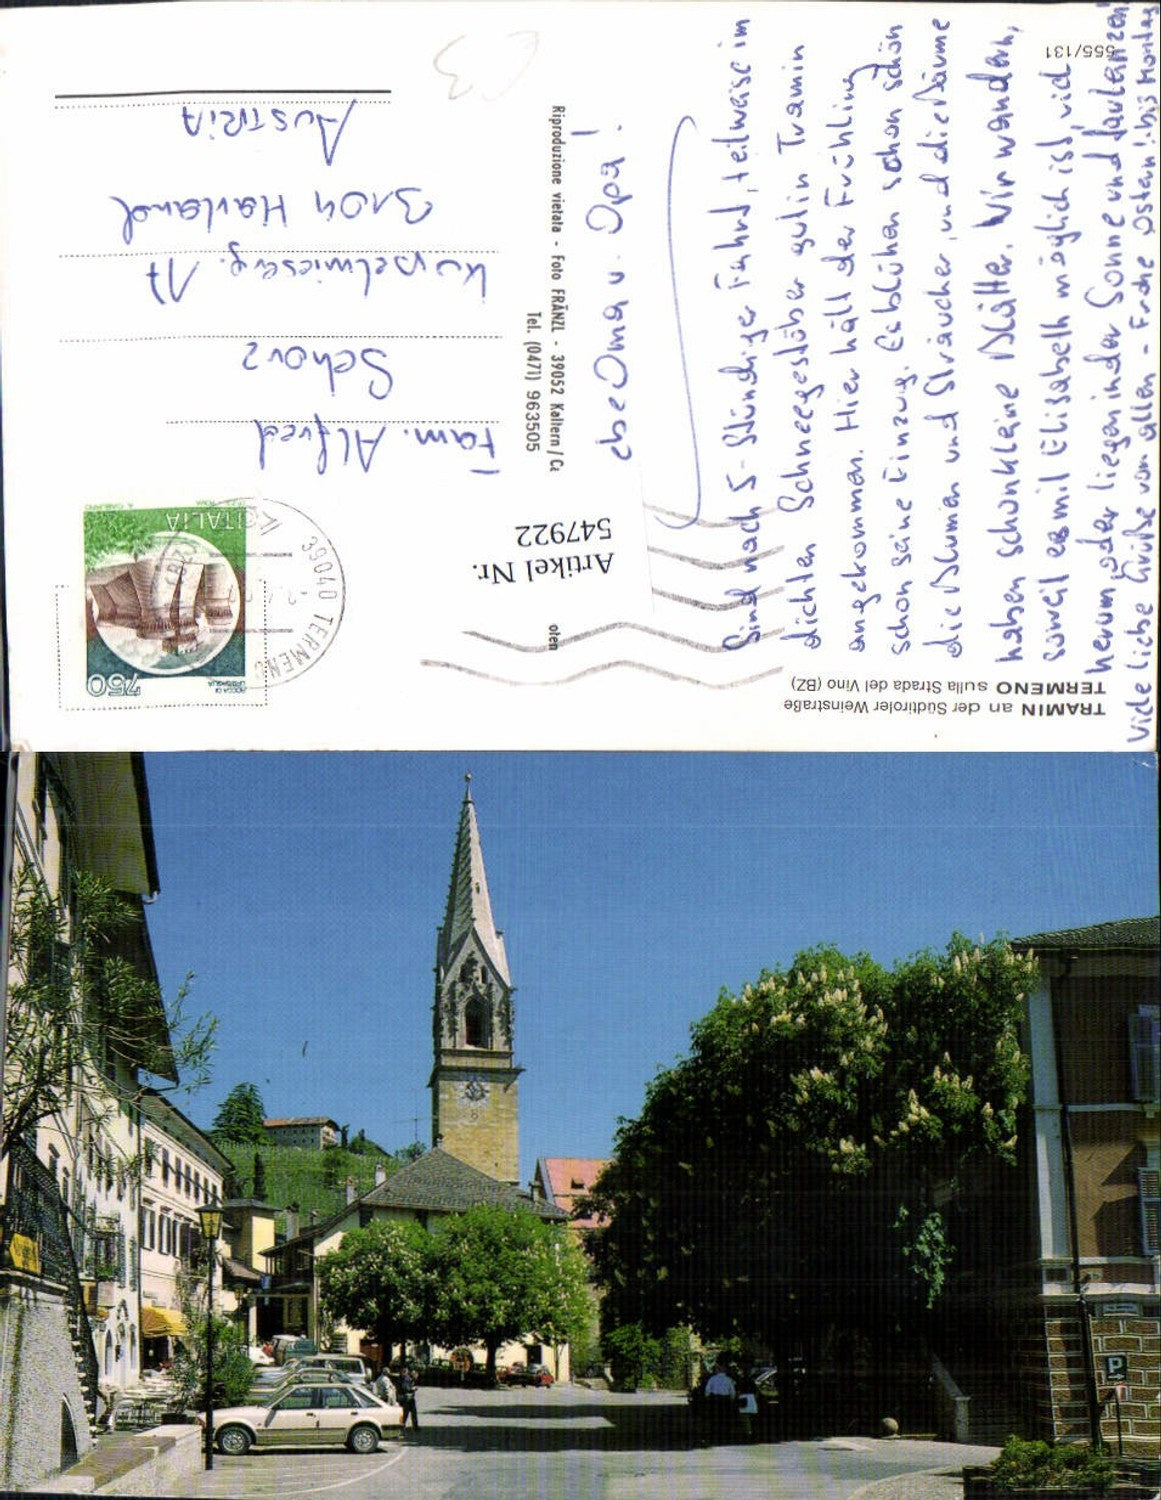 555/131
TRAMIN an der Südtiroler Weinstraße
TERMENO sulla Strada del Vino (BZ)
Riproduzione vietata - Foto FRÄNZL - 39052 Kaltern / Ca
Tel. (0471) 963505
oten
Artikel Nr.
547922
ROCCA DI URBISAGLIA
750
ITALIA
39040 TERMENO
Fam. Alfred
Schorz
17
3104 Harland
AUSTRIA
Oma u. Opa!
Sind nach 5-stündiger Fahrt, teilweise im
dichten Schneegestöber gut in Tramin
angekommen. Hier hält der Frühling
schon seine Einzug. Es blühen schon schön
die Blumen und Sträucher, und die Bäume
haben schon kleine Blätter. Wir wandern,
soweit es mit Elisabeth möglich ist, viel
herum, oder liegen in der Sonne und faulenzen
Viele liebe Grüße von allen - Frohe Ostern! bis Montag
P